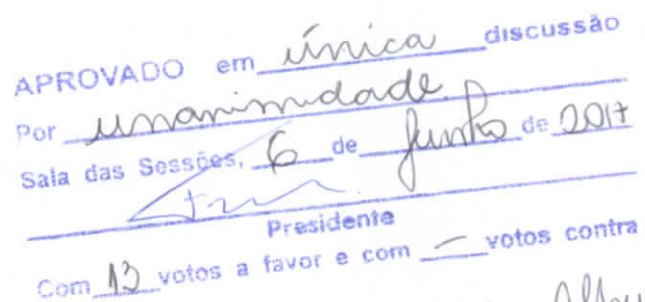 APROVADO em única discussão
Por unanimidade.
Sala das Sessões, 6 de Junho de 2017
Presidente
Com 13 votos a favor e com — votos contra